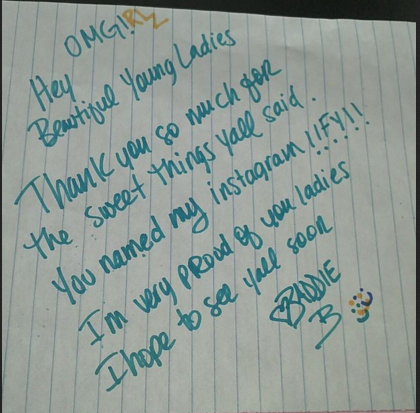 OMG!RLZ
Hey
Beautiful Young Ladies
Thank you so much for
the sweet things yall said.
You named my instagram IIFYI!!
I'm very proud of you ladies
I hope to see yall soon
BADDIE
B